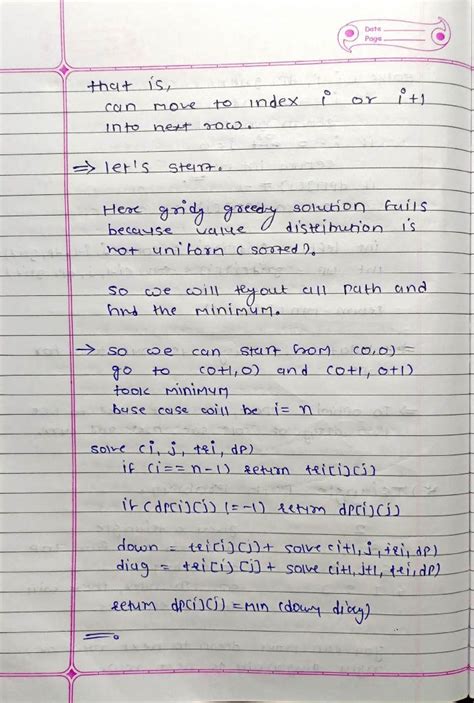 Date
Page
that is,
can move to index i or i+1
into next row.
⇒ let's start.
Here gridy greedy solution fails
because value distribution is
not uniform (sorted).
so we will tryout all path and
find the minimum.
→ so we can start from (0,0) =
go to (0+1,0) and (0+1, 0+1)
took minimum
base case will be i = n
solve (i, j, tri, dp)
if (i == n-1) return tri[i][j]
if (dp[i][j] != -1) return dp[i][j]
down = tri[i][j] + solve (i+1, j, tri, dp)
diag = tri[i][j] + solve (i+1, j+1, tri, dp)
return dp[i][j] = min (down, diag)